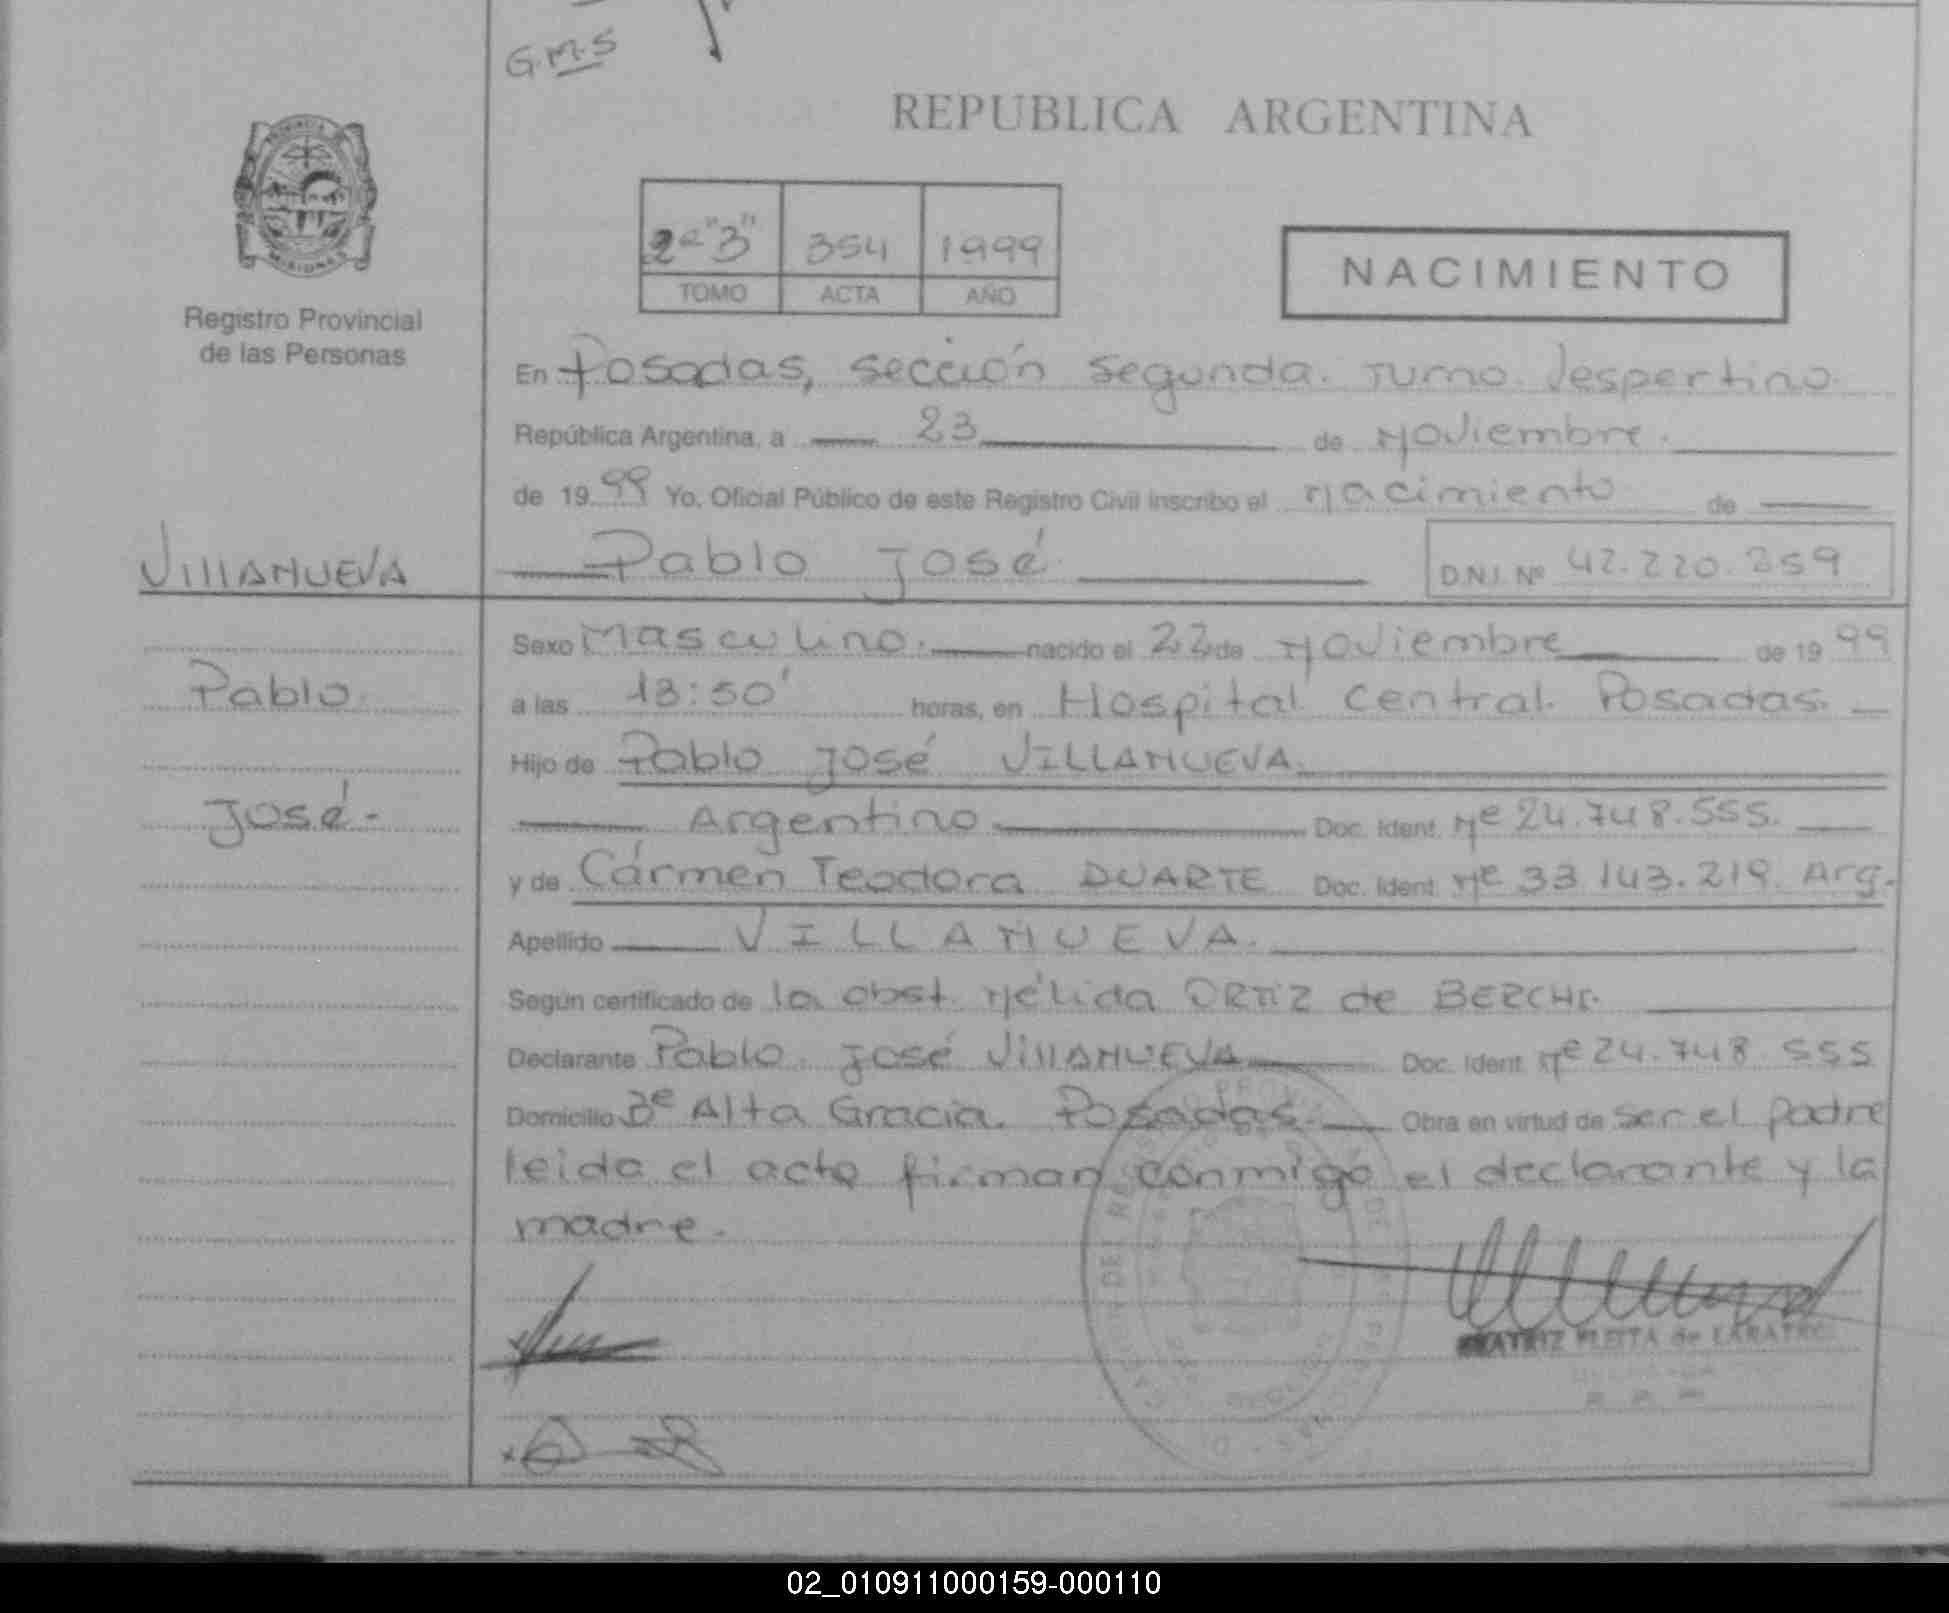 G.M.S
REPUBLICA ARGENTINA
2º "3" 354 1999
TOMO ACTA AÑO
NACIMIENTO
Registro Provincial
de las Personas
En Posadas, sección segunda. Turno Vespertino.
República Argentina, a 23 de Noviembre.
de 19 99 Yo, Oficial Público de este Registro Civil inscribo el Nacimiento de
VIllANUEVA
Pablo José
D.N.I. Nº 42.220.359
Sexo Masculino. nacido el 22 de Noviembre de 19 99
Pablo
a las 13:50' horas, en Hospital Central. Posadas.
Hijo de Pablo José VILLANUEVA.
José.-
Argentino Doc. Ident. Nº 24.748.555.
y de Cármen Teodora DUARTE Doc. Ident. Nº 33.143.219. Arg.
Apellido VILLANUEVA.
Según certificado de la obst. Nélida ORTIZ de BERCHI.
Declarante Pablo José VIllANUEVA Doc. Ident. Nº 24.748.555
Domicilio Bº Alta Gracia. Posadas. Obra en virtud de ser el padre
leida el acta firman conmigo el declarante y la
madre.
PLEITA de
02_010911000159-000110